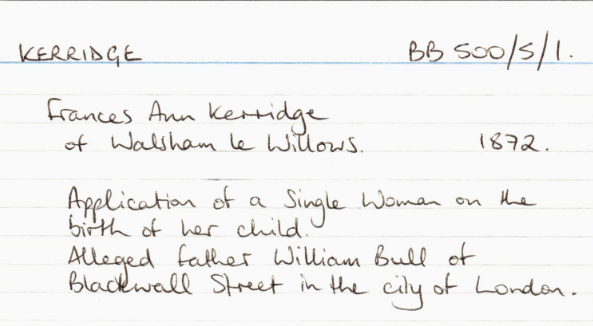 KERRIDGE BB 500/5/1.
Frances Ann Kerridge
of Walsham le Willows. 1872.
Application of a Single Woman on the
birth of her child.
Alleged father William Bull of
Blackwall Street in the city of London.